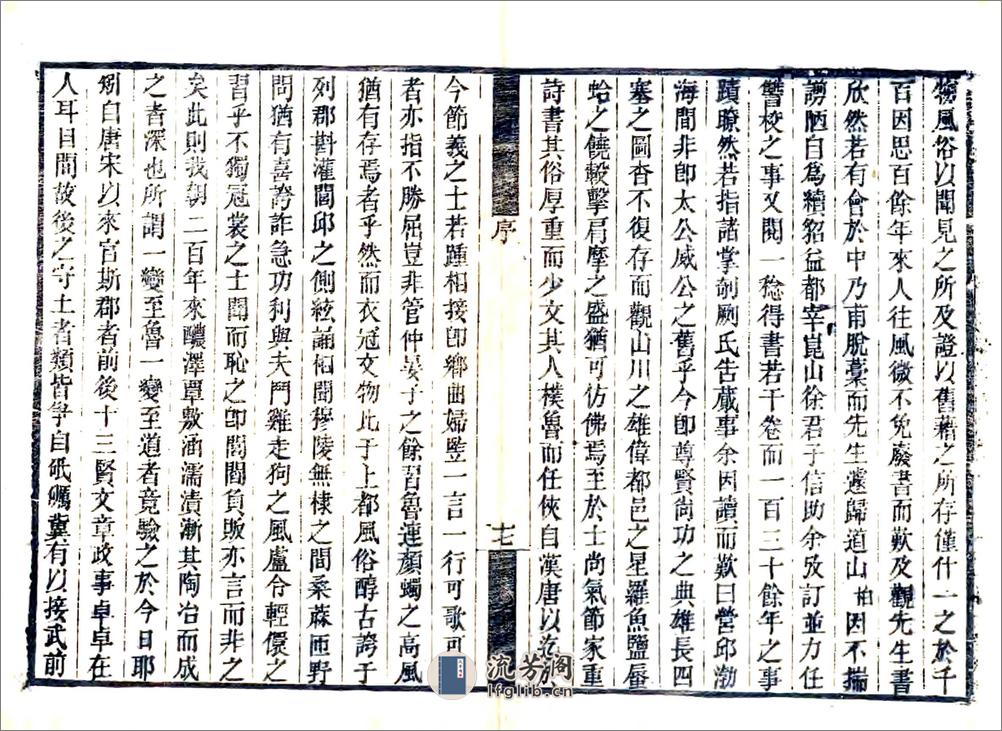 物風俗以聞見之所及證以舊藉之所存僅什一之於千
百因思百餘年來人往風微不免廢書而歎及觀先生書
欣然若有會於中乃甫脫藁而先生遽歸道山柏因不揣
謭陋自為續貂益都宰崑山徐君子信助余攷訂並力任
讐校之事又閱一稔得書若干卷而一百三十餘年之事
蹟暸然若指諸掌剞劂氏告蕆事余因讀而歎曰營邱渤
海間非卽太公威公之舊乎今卽尊賢尚功之典雄長四
塞之圖杳不復存而觀山川之雄偉都邑之星羅魚鹽蜃
蛤之饒轂擊肩摩之盛猶可仿佛焉至於士尚氣節家重
詩書其俗厚重而少文其人樸魯而任俠自漢唐以迄於
序
七
今節義之士若踵相接卽鄉曲婦豎一言一行可歌可
者亦指不勝屈豈非管仲晏子之餘習魯連顏蠋之高風
猶有存焉者乎然而衣冠文物比于上都風俗醇古誇于
列郡斟灌閭邱之側絃誦相聞穆陵無棣之間桑蔴匝野
問猶有喜誇詐急功利與夫鬥雞走狗之風盧令輕儇之
習乎不獨冠裳之士聞而恥之卽閭閻負販亦言而非之
矣此則我朝二百年來醲澤覃敷涵濡漬漸其陶冶而成
之者深也所謂一變至魯一變至道者竟驗之於今日耶
矧自唐宋以來官斯郡者前後十三賢文章政事卓卓在
人耳目間故後之守土者類皆爭自砥礪冀有以接武前
流芳閣
lfglib.cn